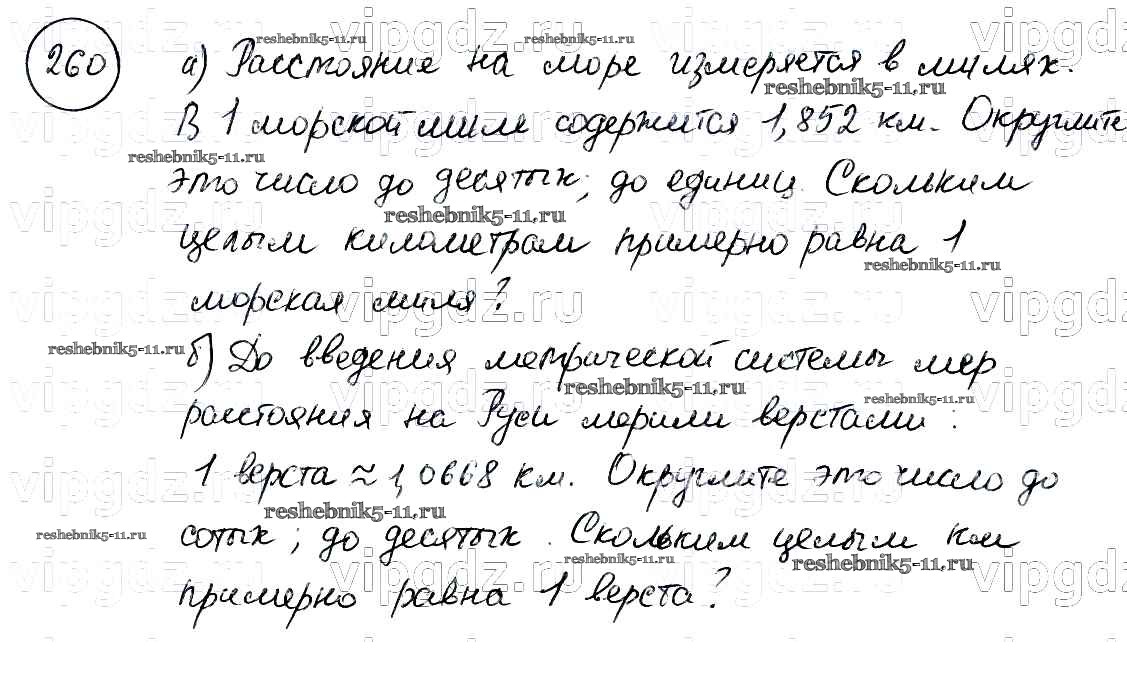 260 а) Расстояние на море измеряется в милях.
В 1 морской миле содержится 1,852 км. Округлите
это число до десятых; до единиц. Скольким
целым километрам примерно равна 1
морская миля?
б) До введения метрической системы мер
расстояния на Руси мерили верстами:
1 верста ≈ 1,0668 км. Округлите это число до
сотых; до десятых. Скольким целым км
примерно равна 1 верста?
vipgdz.ru
reshebnik5-11.ru